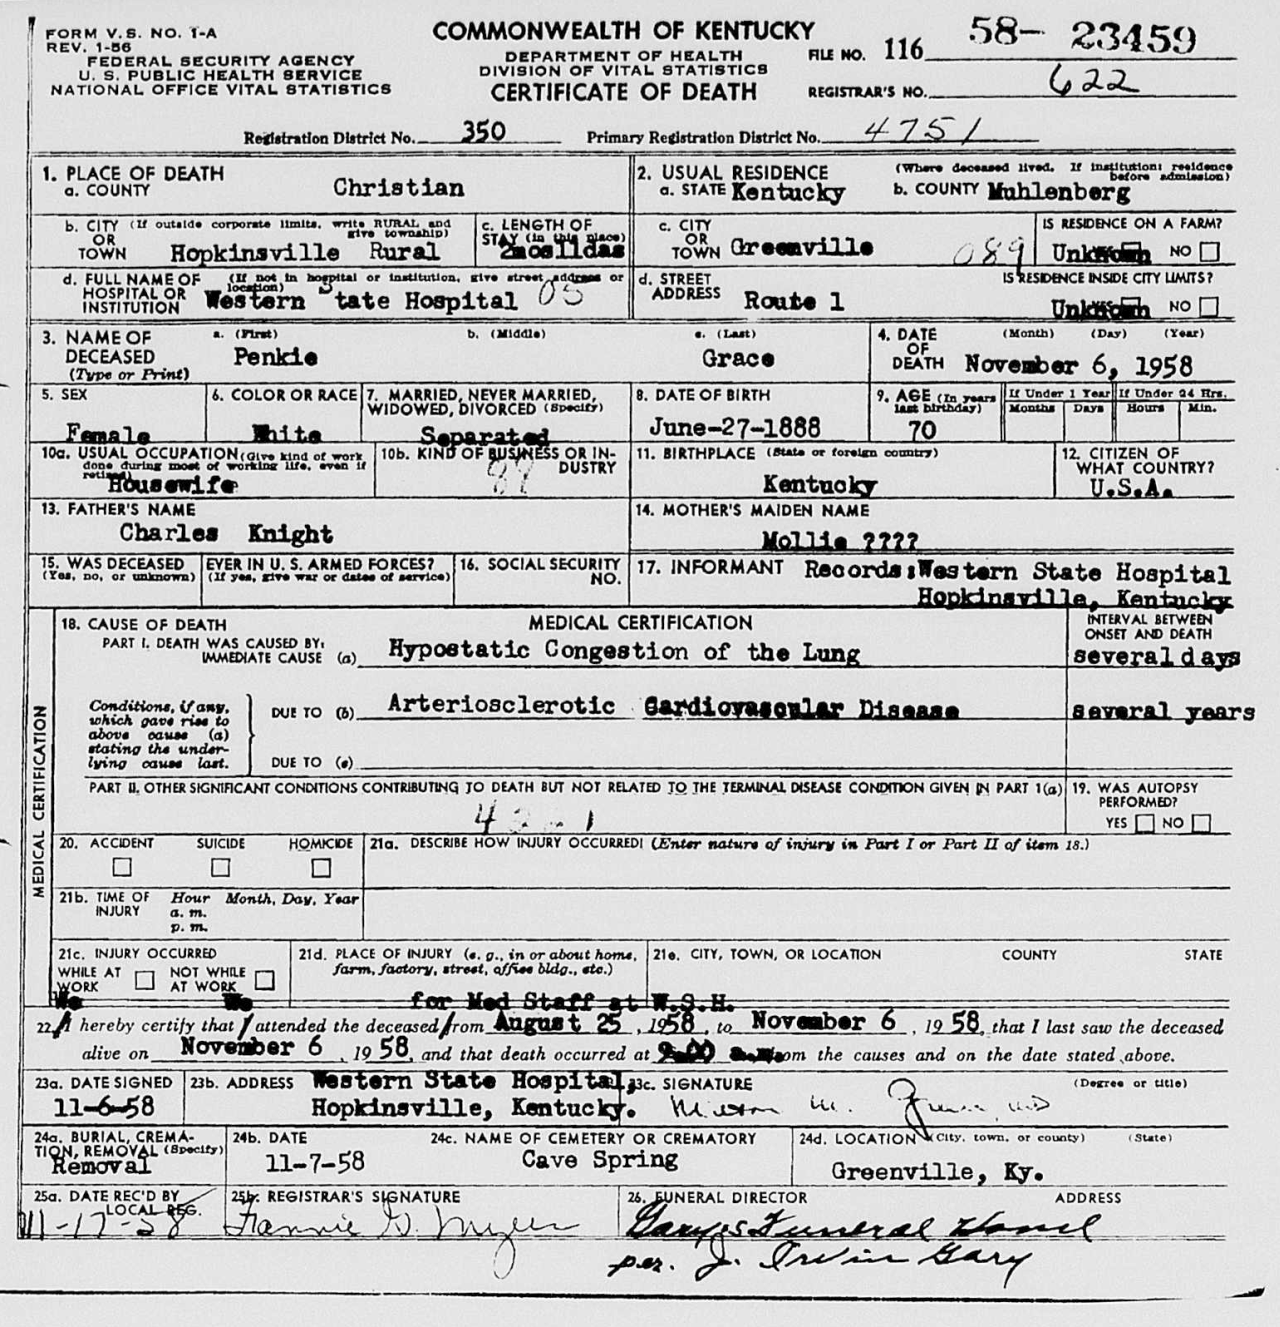 FORM V.S. NO. 1-A
REV. 1-56
FEDERAL SECURITY AGENCY
U. S. PUBLIC HEALTH SERVICE
NATIONAL OFFICE VITAL STATISTICS
COMMONWEALTH OF KENTUCKY
DEPARTMENT OF HEALTH
DIVISION OF VITAL STATISTICS
CERTIFICATE OF DEATH
FILE NO. 116 58- 23459
REGISTRAR'S NO. 622
Registration District No. 350 Primary Registration District No. 4751
1. PLACE OF DEATH
a. COUNTY Christian
2. USUAL RESIDENCE (Where deceased lived. If institution: residence before admission)
a. STATE Kentucky b. COUNTY Muhlenberg
b. CITY (If outside corporate limits, write RURAL and give township)
OR
TOWN Hopkinsville Rural
c. LENGTH OF
STAY (in this place)
2mos11das
c. CITY
OR
TOWN Greenville
089
IS RESIDENCE ON A FARM?
Unknown NO
d. FULL NAME OF (If not in hospital or institution, give street address or location)
HOSPITAL OR
INSTITUTION Western State Hospital 05
d. STREET
ADDRESS Route 1
IS RESIDENCE INSIDE CITY LIMITS?
Unknown NO
3. NAME OF
DECEASED
(Type or Print)
a. (First) b. (Middle) c. (Last)
Penkie Grace
4. DATE
OF
DEATH
(Month) (Day) (Year)
November 6, 1958
5. SEX
Female
6. COLOR OR RACE
White
7. MARRIED, NEVER MARRIED,
WIDOWED, DIVORCED (Specify)
Separated
8. DATE OF BIRTH
June-27-1888
9. AGE (In years last birthday)
70
If Under 1 Year If Under 24 Hrs.
Months Days Hours Min.
10a. USUAL OCCUPATION (Give kind of work done during most of working life, even if retired)
Housewife
10b. KIND OF BUSINESS OR INDUSTRY
11. BIRTHPLACE (State or foreign country)
Kentucky
12. CITIZEN OF
WHAT COUNTRY?
U.S.A.
13. FATHER'S NAME
Charles Knight
14. MOTHER'S MAIDEN NAME
Mollie ????
15. WAS DECEASED EVER IN U. S. ARMED FORCES?
(Yes, no, or unknown) (If yes, give war or dates of service)
16. SOCIAL SECURITY
NO.
17. INFORMANT Records:Western State Hospital
Hopkinsville, Kentucky
MEDICAL CERTIFICATION
18. CAUSE OF DEATH MEDICAL CERTIFICATION
PART I. DEATH WAS CAUSED BY:
IMMEDIATE CAUSE (a) Hypostatic Congestion of the Lung
INTERVAL BETWEEN
ONSET AND DEATH
several days
Conditions, if any,
which gave rise to
above cause (a)
stating the under-
lying cause last.
DUE TO (b) Arteriosclerotic Cardiovascular Disease several years
DUE TO (c)
PART II. OTHER SIGNIFICANT CONDITIONS CONTRIBUTING TO DEATH BUT NOT RELATED TO THE TERMINAL DISEASE CONDITION GIVEN IN PART 1(a)
19. WAS AUTOPSY
PERFORMED?
YES NO
20. ACCIDENT SUICIDE HOMICIDE
21a. DESCRIBE HOW INJURY OCCURRED! (Enter nature of injury in Part I or Part II of item 18.)
21b. TIME OF
INJURY
Hour Month, Day, Year
a. m.
p. m.
21c. INJURY OCCURRED
WHILE AT
WORK
NOT WHILE
AT WORK
21d. PLACE OF INJURY (e. g., in or about home,
farm, factory, street, office bldg., etc.)
21e. CITY, TOWN, OR LOCATION COUNTY STATE
We We for Med Staff at W.S.H.
22. I hereby certify that I attended the deceased from August 25, 1958, to November 6, 1958, that I last saw the deceased
alive on November 6, 1958, and that death occurred at from the causes and on the date stated above.
23a. DATE SIGNED
11-6-58
23b. ADDRESS Western State Hospital,
Hopkinsville, Kentucky.
23c. SIGNATURE (Degree or title)
M. MD
24a. BURIAL, CREMA-
TION, REMOVAL (Specify)
Removal
24b. DATE
11-7-58
24c. NAME OF CEMETERY OR CREMATORY
Cave Spring
24d. LOCATION (City, town, or county) (State)
Greenville, Ky.
25a. DATE REC'D BY
LOCAL REG.
11-17-58
25b. REGISTRAR'S SIGNATURE
Fannie G.
26. FUNERAL DIRECTOR ADDRESS
Gary's Funeral Home
per. J. Irvin Gary